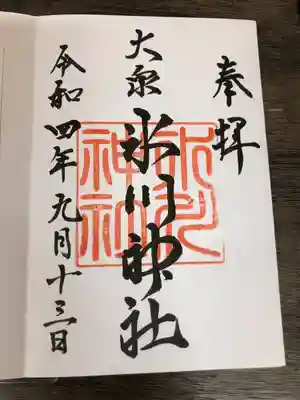 奉拝
大泉
氷川神社
氷川神社
令和四年九月十三日